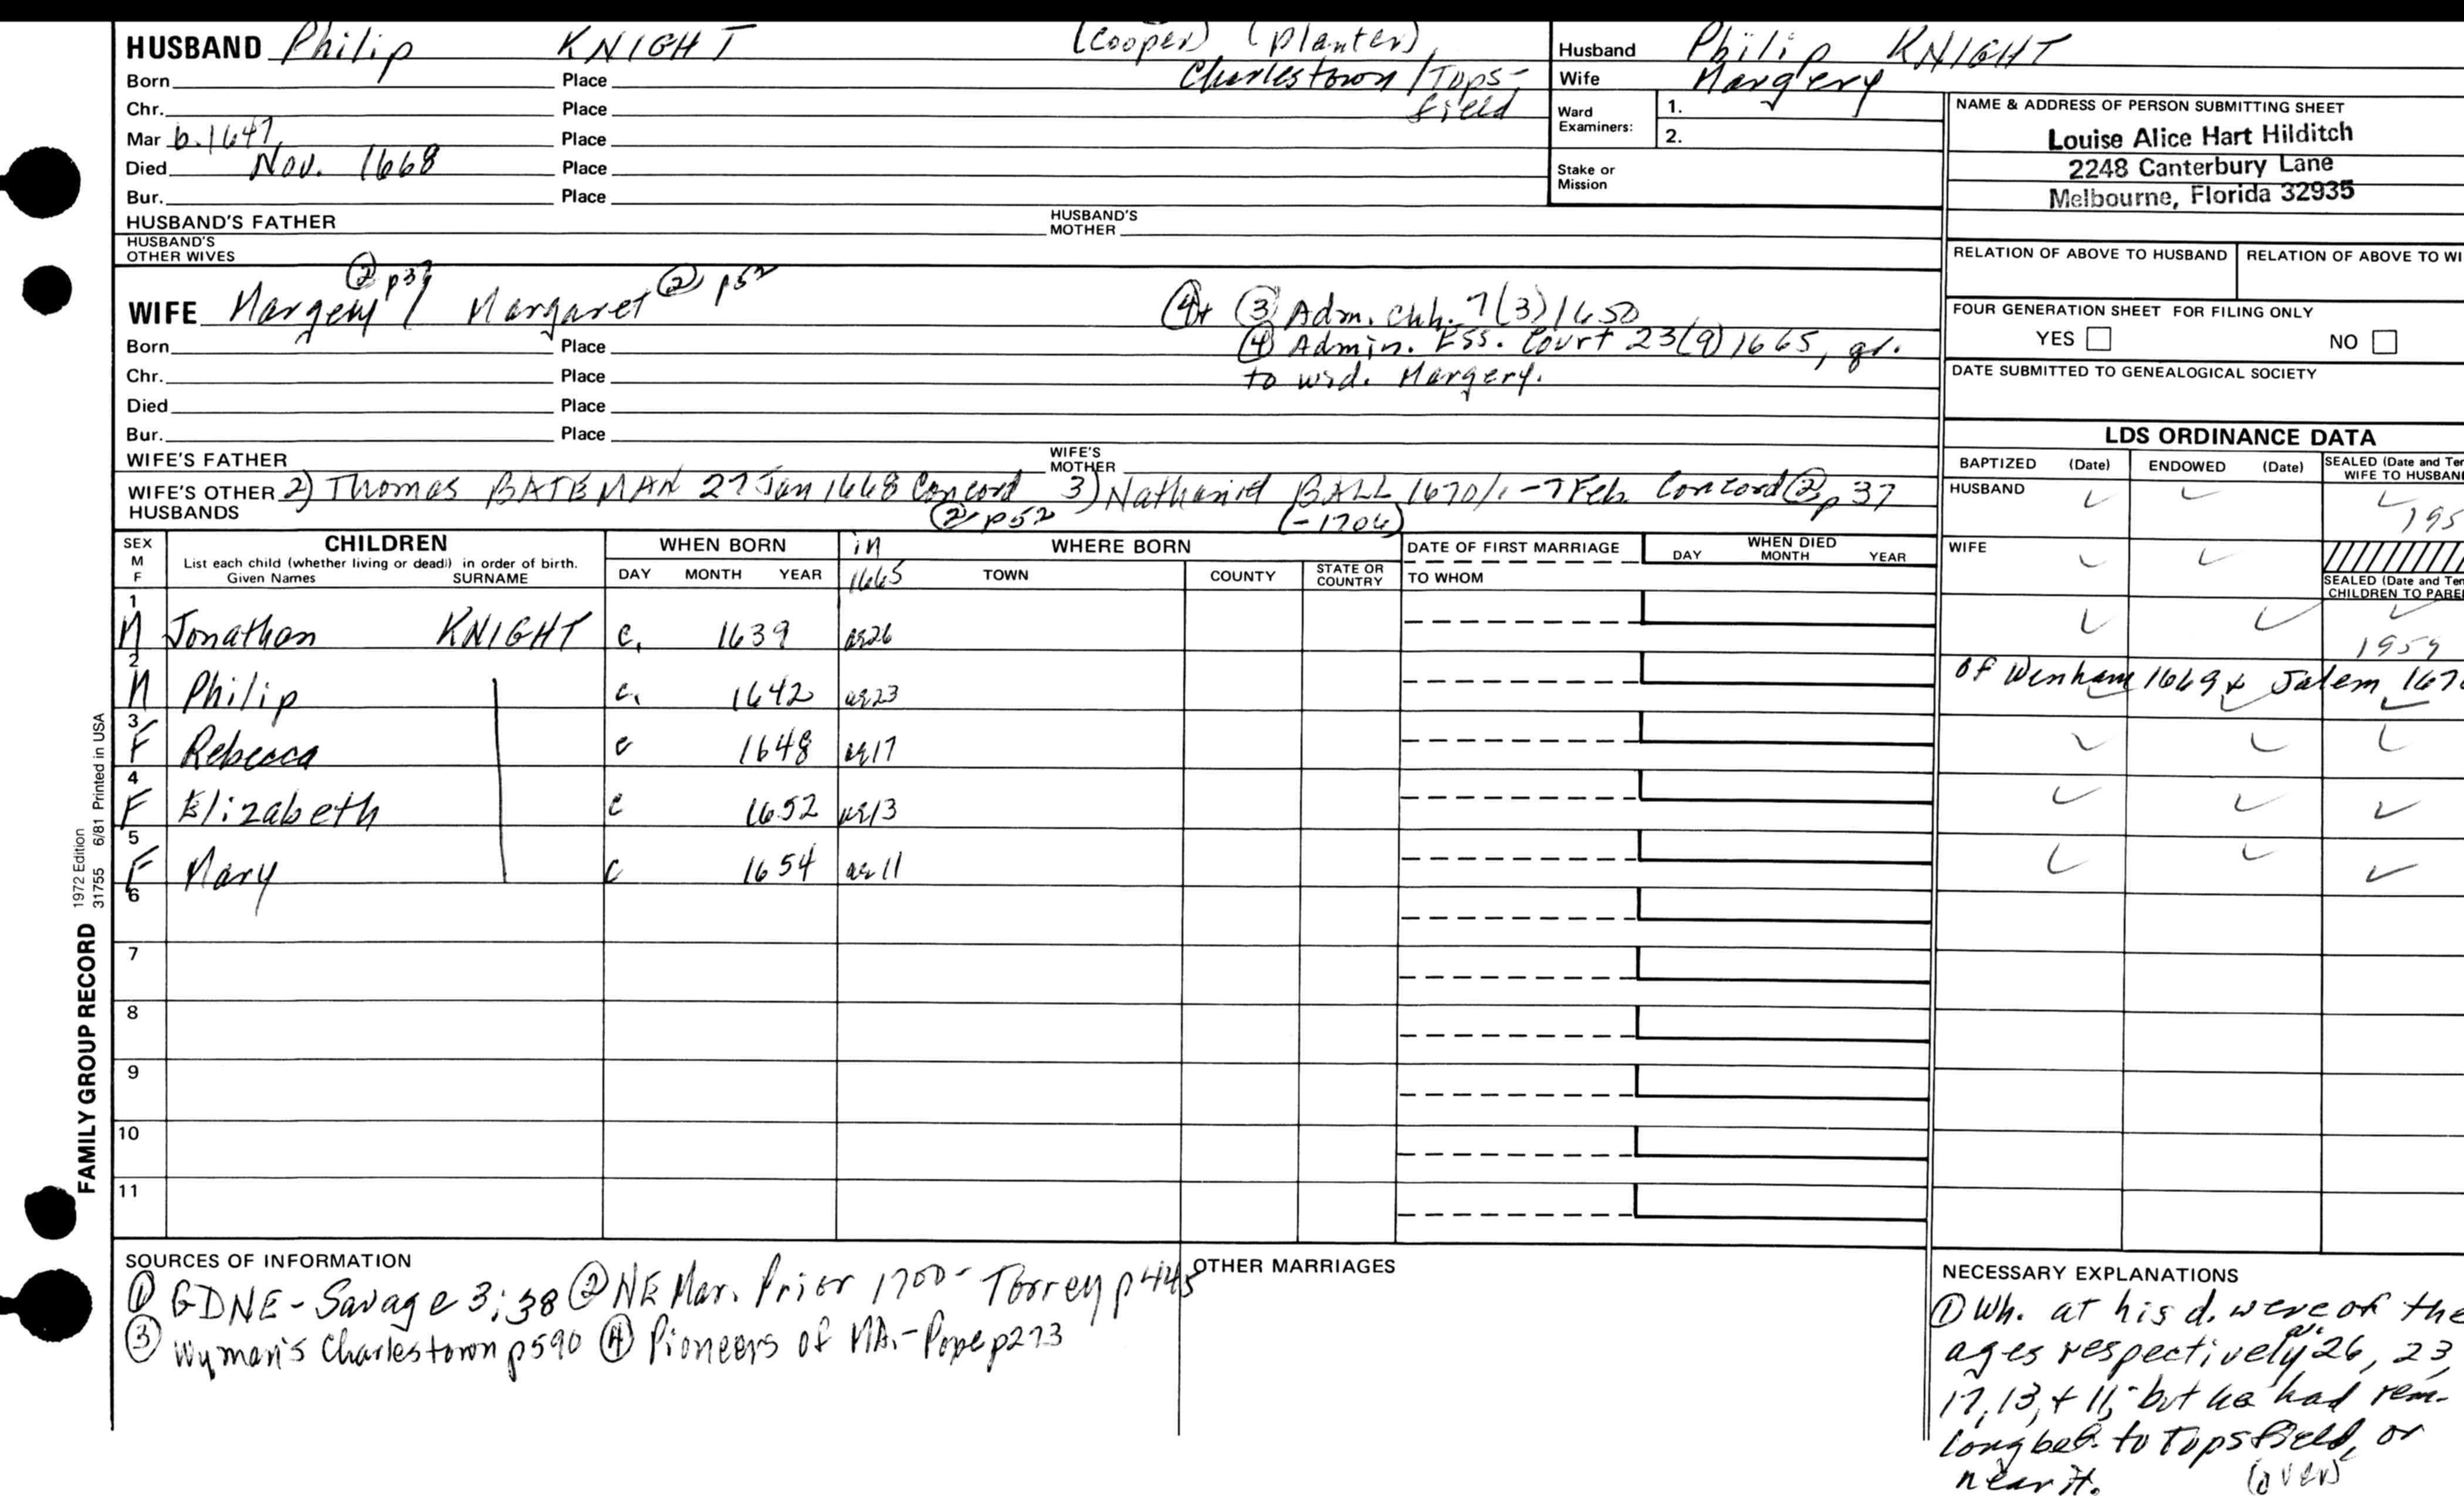 HUSBAND Philip KNIGHT (Cooper) (planter)
Charlestown / Tops-
field
Born Place
Chr. Place
Mar b. 1647, Place
Died Nov. 1668 Place
Bur. Place
HUSBAND'S FATHER HUSBAND'S MOTHER
HUSBAND'S OTHER WIVES
Husband Philip KNIGHT
Wife Margery
Ward Examiners: 1.
2.
Stake or Mission
NAME & ADDRESS OF PERSON SUBMITTING SHEET
Louise Alice Hart Hilditch
2248 Canterbury Lane
Melbourne, Florida 32935
RELATION OF ABOVE TO HUSBAND RELATION OF ABOVE TO WI
FOUR GENERATION SHEET FOR FILING ONLY
YES NO
DATE SUBMITTED TO GENEALOGICAL SOCIETY
② p37 ② p52
WIFE Margery / Margaret
④+ ③ Adm. chh. 7(3)1650
④ Admin. Ess. Court 23(9)1665, gr.
to wid. Margery.
Born Place
Chr. Place
Died Place
Bur. Place
WIFE'S FATHER WIFE'S MOTHER
WIFE'S OTHER HUSBANDS 2) Thomas BATEMAN 27 Jan 1668 Concord 3) Nathaniel BALL 1670/1 - 7 Feb. Concord ② p 37
② p52 (-1706)
LDS ORDINANCE DATA
BAPTIZED (Date) ENDOWED (Date) SEALED (Date and Tem
WIFE TO HUSBAND
HUSBAND ✓ ✓ ✓
195
WIFE ✓ ✓
SEALED (Date and Tem
CHILDREN TO PARE
SEX M F
CHILDREN
List each child (whether living or dead) in order of birth.
Given Names SURNAME
WHEN BORN
DAY MONTH YEAR
in
1665
WHERE BORN
TOWN COUNTY STATE OR COUNTRY
DATE OF FIRST MARRIAGE
TO WHOM
WHEN DIED
DAY MONTH YEAR
1 M Jonathan KNIGHT c. 1639 ag 26 ✓ ✓ ✓
1959
2 M Philip c. 1642 ag 23 of Wenham 1669 & Salem 167
3 F Rebecca c 1648 ag 17 ✓ ✓ ✓
4 F Elizabeth c 1652 ag 13 ✓ ✓ ✓
5 F Mary c 1654 ag 11 ✓ ✓ ✓
6
7
8
9
10
11
FAMILY GROUP RECORD
1972 Edition
31755 6/81 Printed in USA
SOURCES OF INFORMATION
① GDNE - Savage 3:38 ② NE Mar. Prior 1700 - Torrey p 445
③ Wyman's Charlestown p590 ④ Pioneers of MA. - Pope p273
OTHER MARRIAGES
NECESSARY EXPLANATIONS
① Wh. at his d. were of the
ages respectively 26, 23,
17, 13, + 11; but he had rem.
long bef. to Topsfield, or
near it. (over)